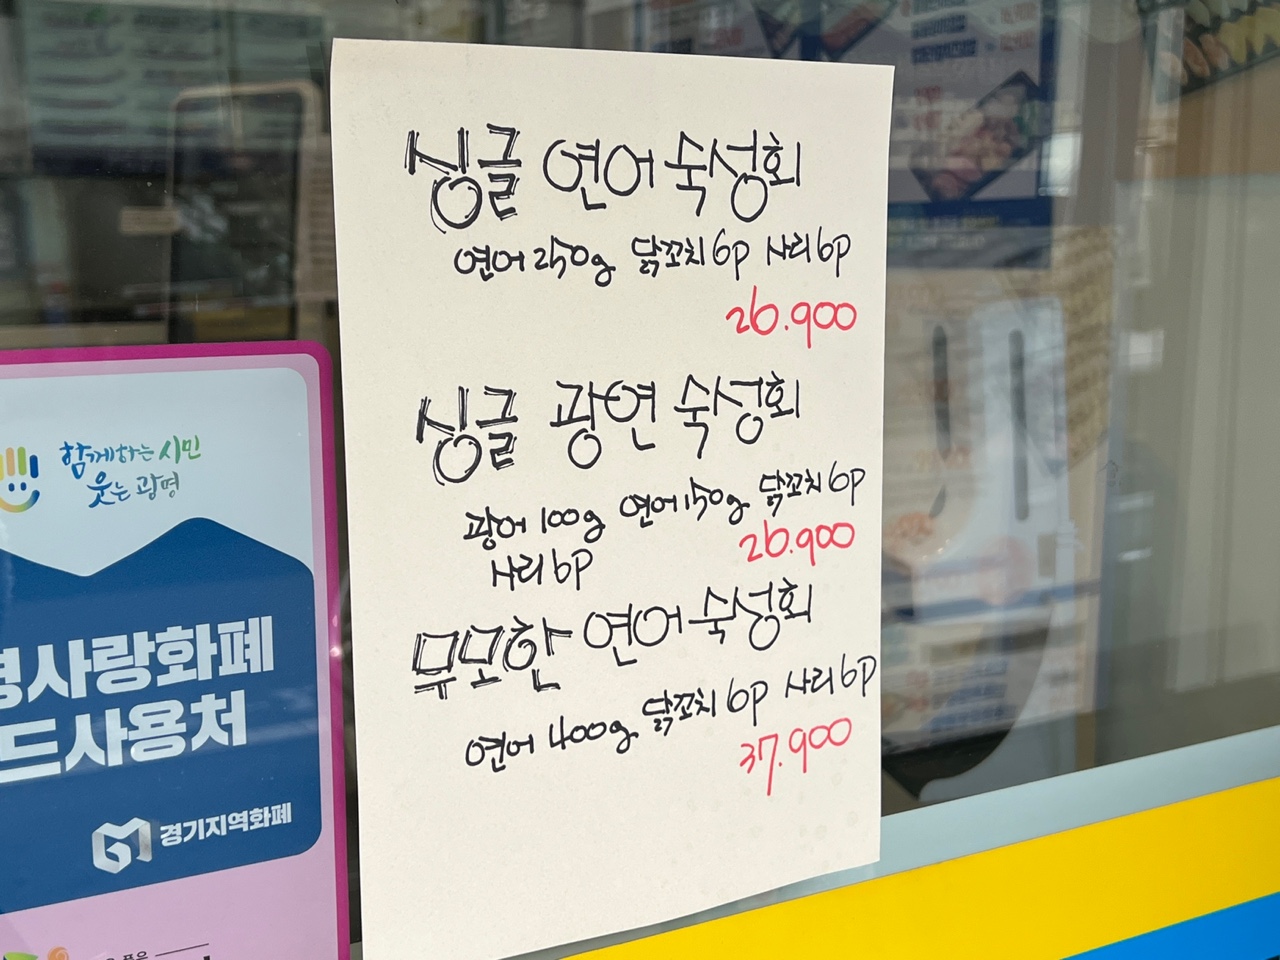 싱글 연어 숙성회
연어 250g 닭꼬치 6p 사리 6p
26.900
싱글 광연 숙성회
광어 100g 연어 150g 닭꼬치 6p
사리 6P
26.900
무모한 연어 숙성회
연어 400g 닭꼬치 6p 사리 6p
37.900
함께하는 시민
웃는 광명
사랑화폐
드사용처
경기지역화폐